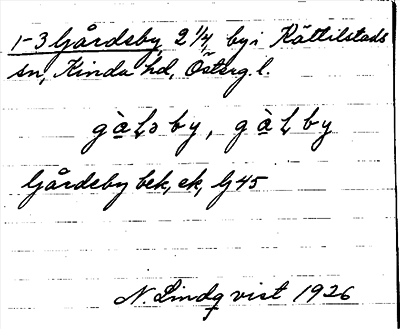 1-3 Gårdsby, 2 1/4, by i Kättilstads
sn, Kinda hd, Österg. l.
gàɭsby, gàɭby
Gårdsby bek, ek, G 45
N. Lindqvist 1926